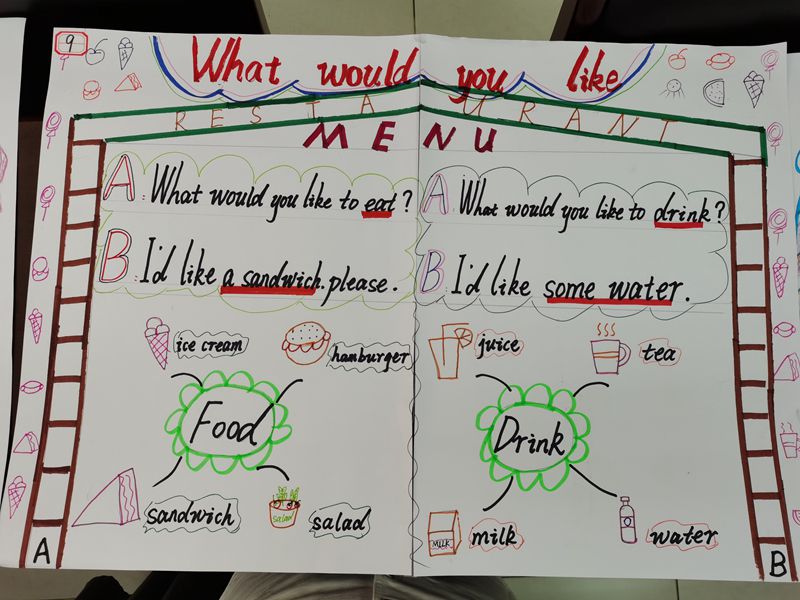 9
What would you like
RESTAURANT
MENU
A: What would you like to eat?
B: I'd like a sandwich. please.
A: What would you like to drink?
B: I'd like some water.
ice cream
hamburger
Food
sandwich
SALAD
salad
juice
tea
Drink
MILK
milk
water
A
B